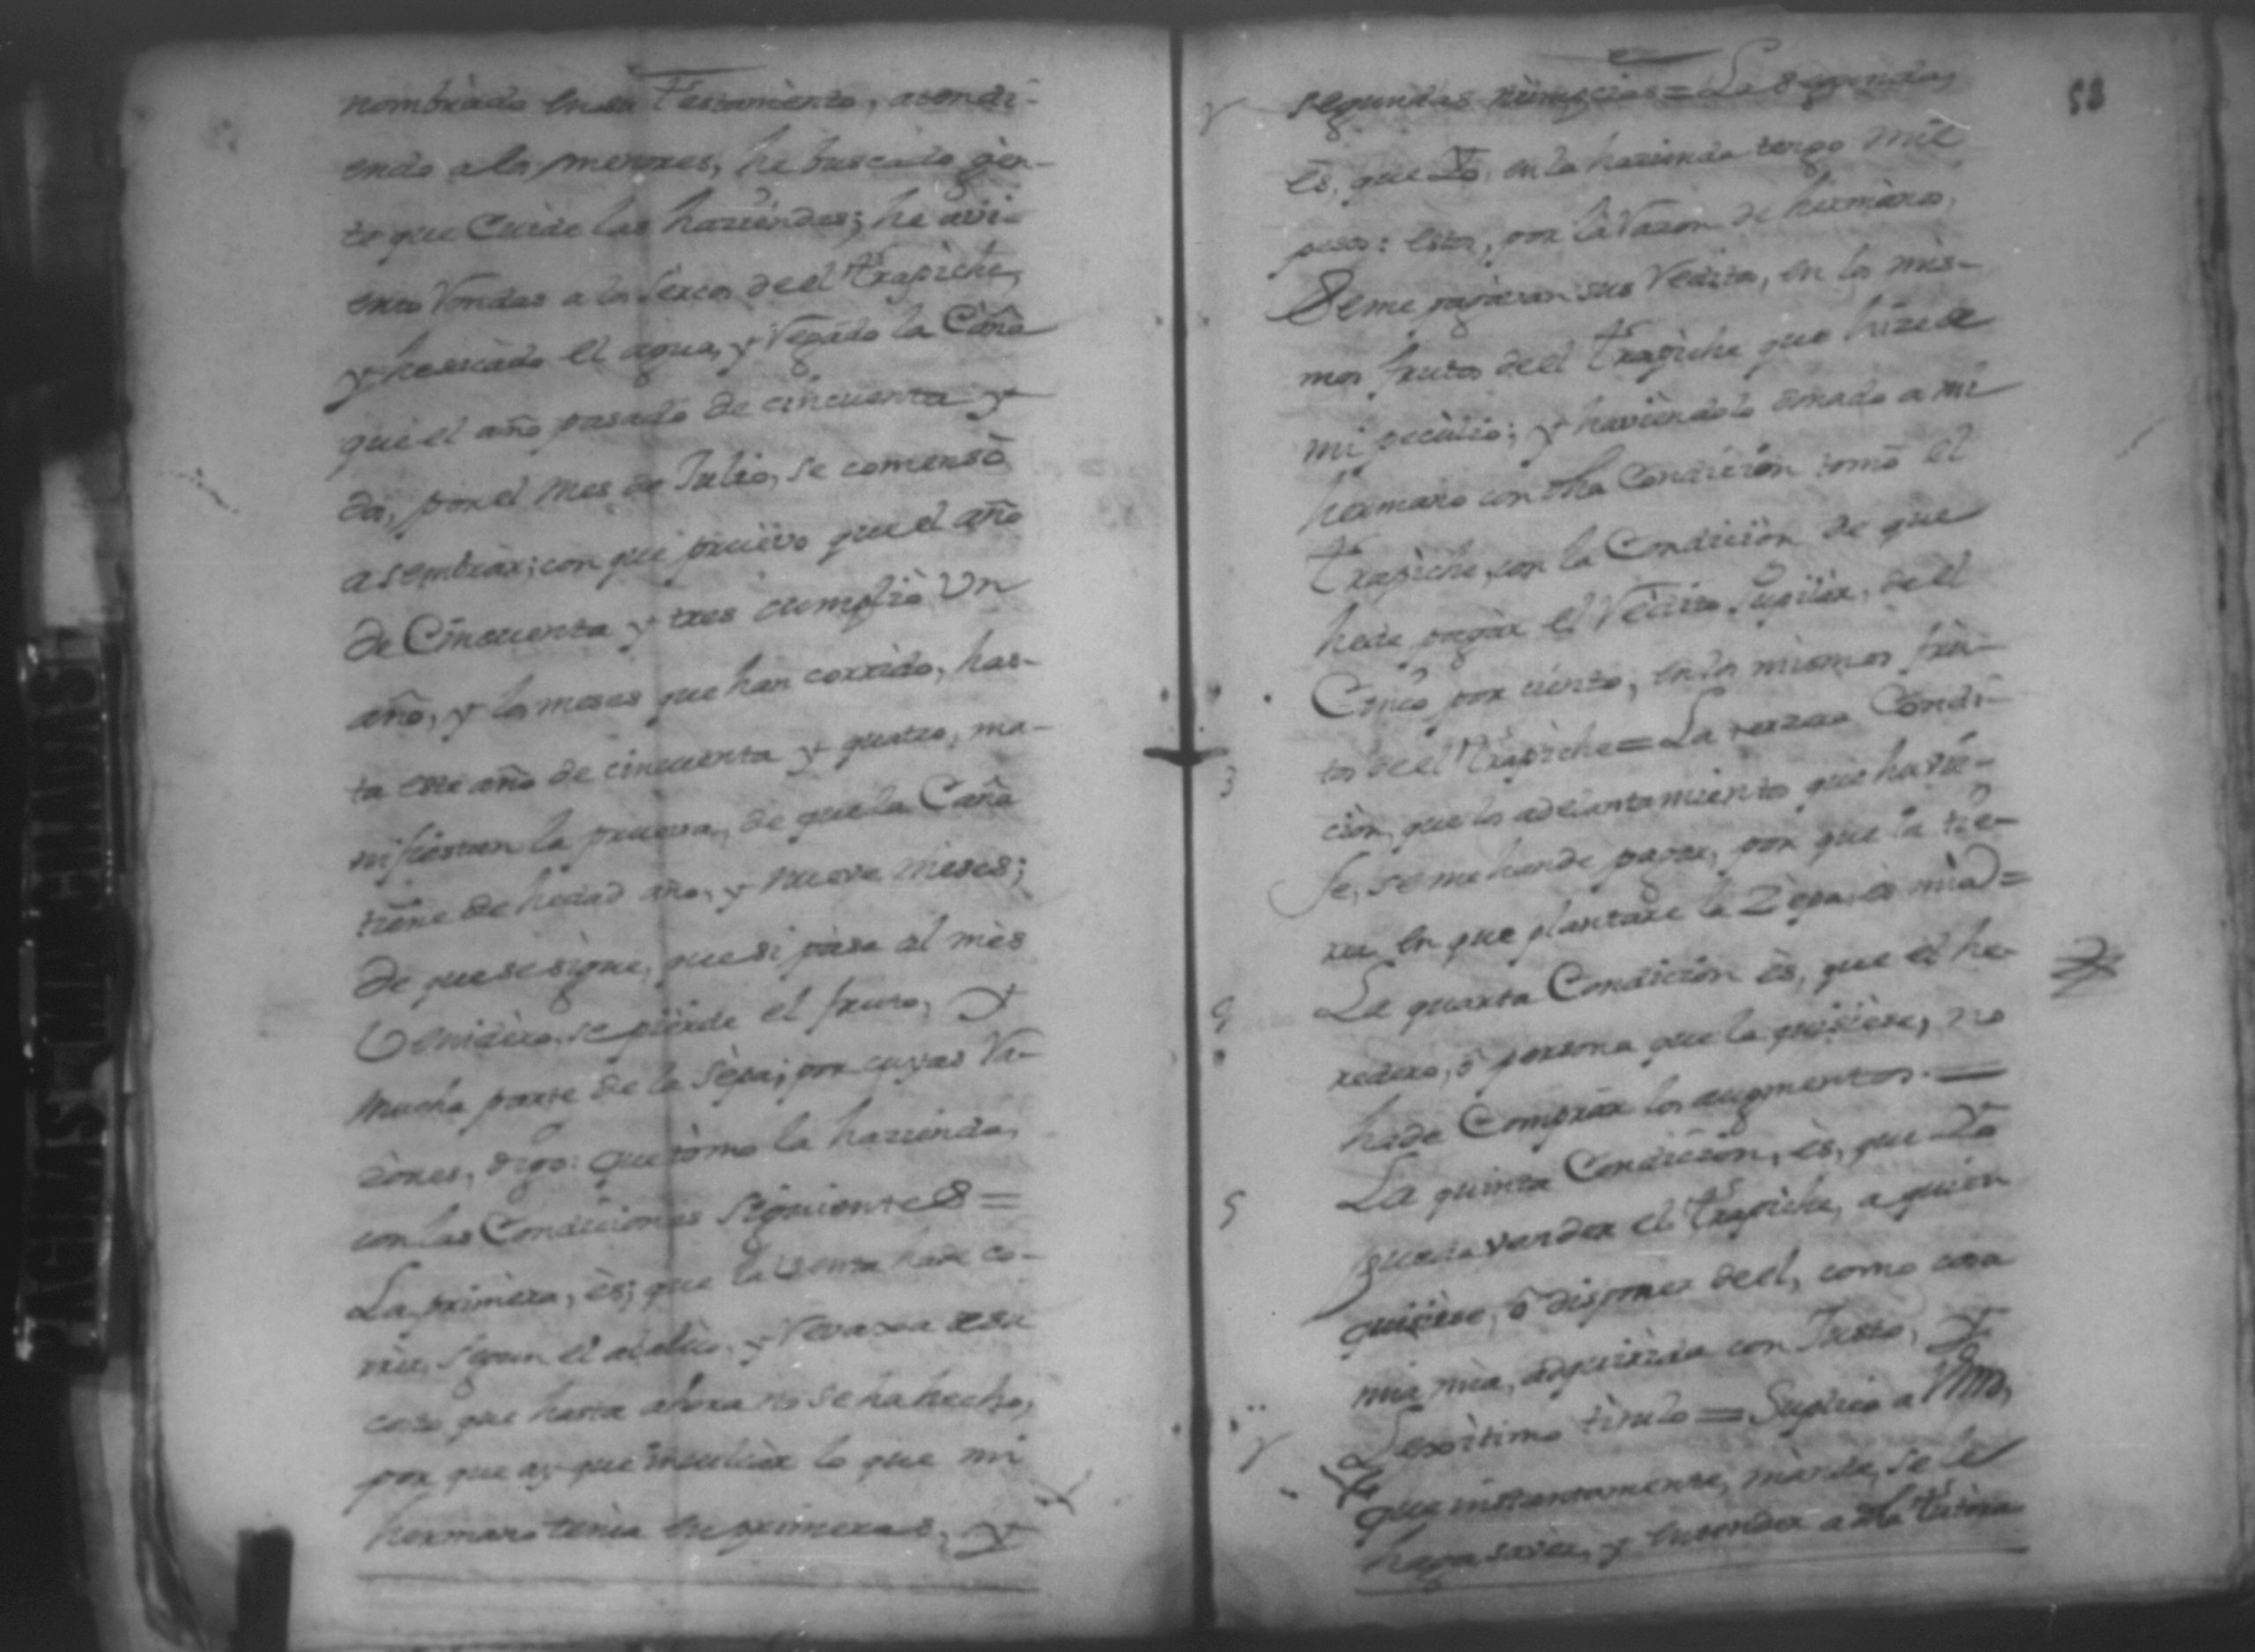 nombrado en su Testamento, atendi-
endo a los menores, he buscado gen-
te que Cuide las haziendas; he avi-
erto Vondas a los sercos de el trapiche,
y hechado el agua, y Regado la Caña
que el año pasado de cincuenta y
dos, por el mes de Julio, se comensò
a sembrar; con que pruevo que el año
de Cincuenta y tres cumplio Vn
año, y los meses que han corrido, has-
ta este año de cincuenta y quatro, ma-
nifiestan la prueva, de que la Caña
tiene de hedad año, y nueve meses;
de que se sigue, que si pasa al mes
Venidero se pierde el fruto, y
mucha parte de la sepa; por cuyas Ra-
zones, digo: que tomo la hazienda,
con las Condiciones siguientes =
La primera, es; que la venta hade co-
rrer, segun el avaluo, y Revaxa
cosa que hasta ahora no se ha hecho,
por que ay que inculcar lo que mi
hermano tenia en primeras, y
58
segundas nupcias = La segunda,
es, que Yo, en la hazienda tengo mil
pesos: estos, por la Razon de hermanos,
Se me pagavan sus Reditos, en los mis-
mos frutos de el trapiche que hize de
mi peculio; y haviendolo donado a mi
hermano con dha Condicion tomò el
trapiche, con la Condicion de que
hede pagar el Redito Pupilar, de el
Cinco por ciento, en los mismos fru-
tos de el trapiche = La terzera Condi-
3
cion, que los adelantamientos que hasie-
se, se me hande pagar, por que la tie-
rra en que plantare la Zepa, es mia =
4
La quarta Condicion es, que el he-
redero, ò persona que la quisiere,
hade Comprar los augmentos. =
5
La quinta Condicion, es, que Yo
pueda vender el trapiche, a quien
quisiere, ò disponer de el, como cosa
mia, adquirida con Justo, y
Lexitimo titulo = Suplico a Vmd,
que instantamente, mande, se le
haga saver, y entender a dha tutora